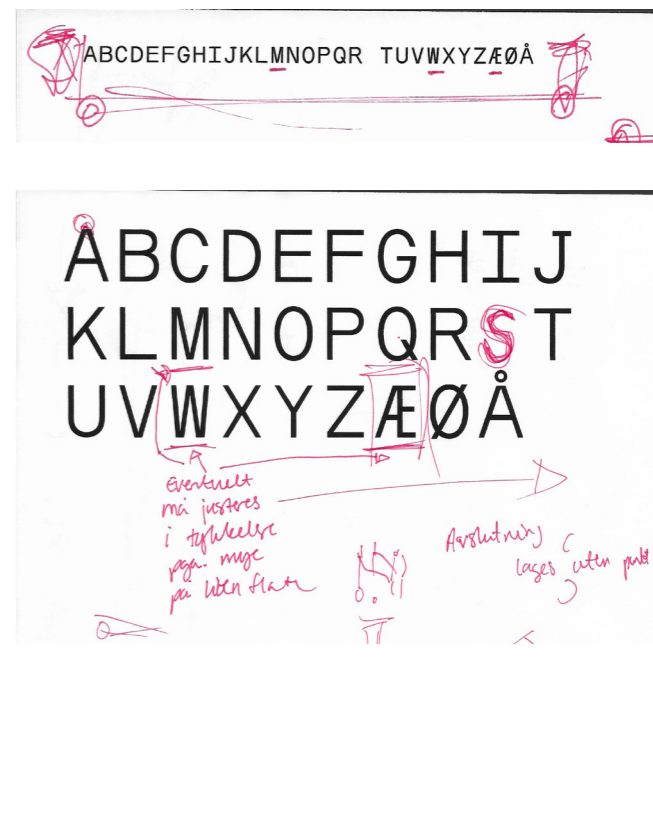 ABCDEFGHIJKLMNOPQR TUVWXYZÆØÅ
ABCDEFGHIJ
KLMNOPQRST
UVWXYZÆØÅ
Eventuelt
må justeres
i tykkelse
pga. mye
på liten flate
Avslutning
lages uten punkt